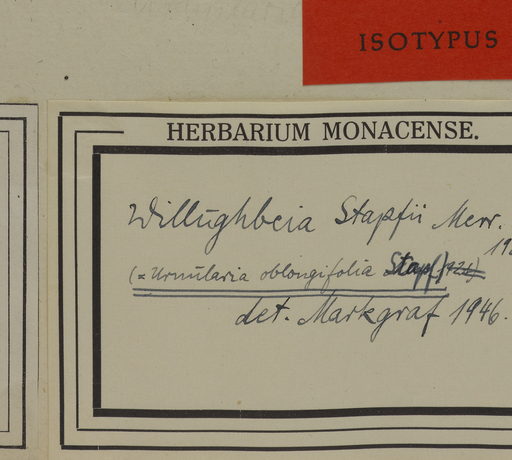 ISOTYPUS
HERBARIUM MONACENSE.
Willughbeia Stapfii Merr.
(= Urnularia oblongifolia Stapf)
det. Markgraf 1946.